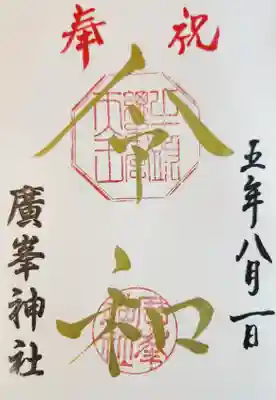 奉祝
令和
五年八月一日
廣峯神社